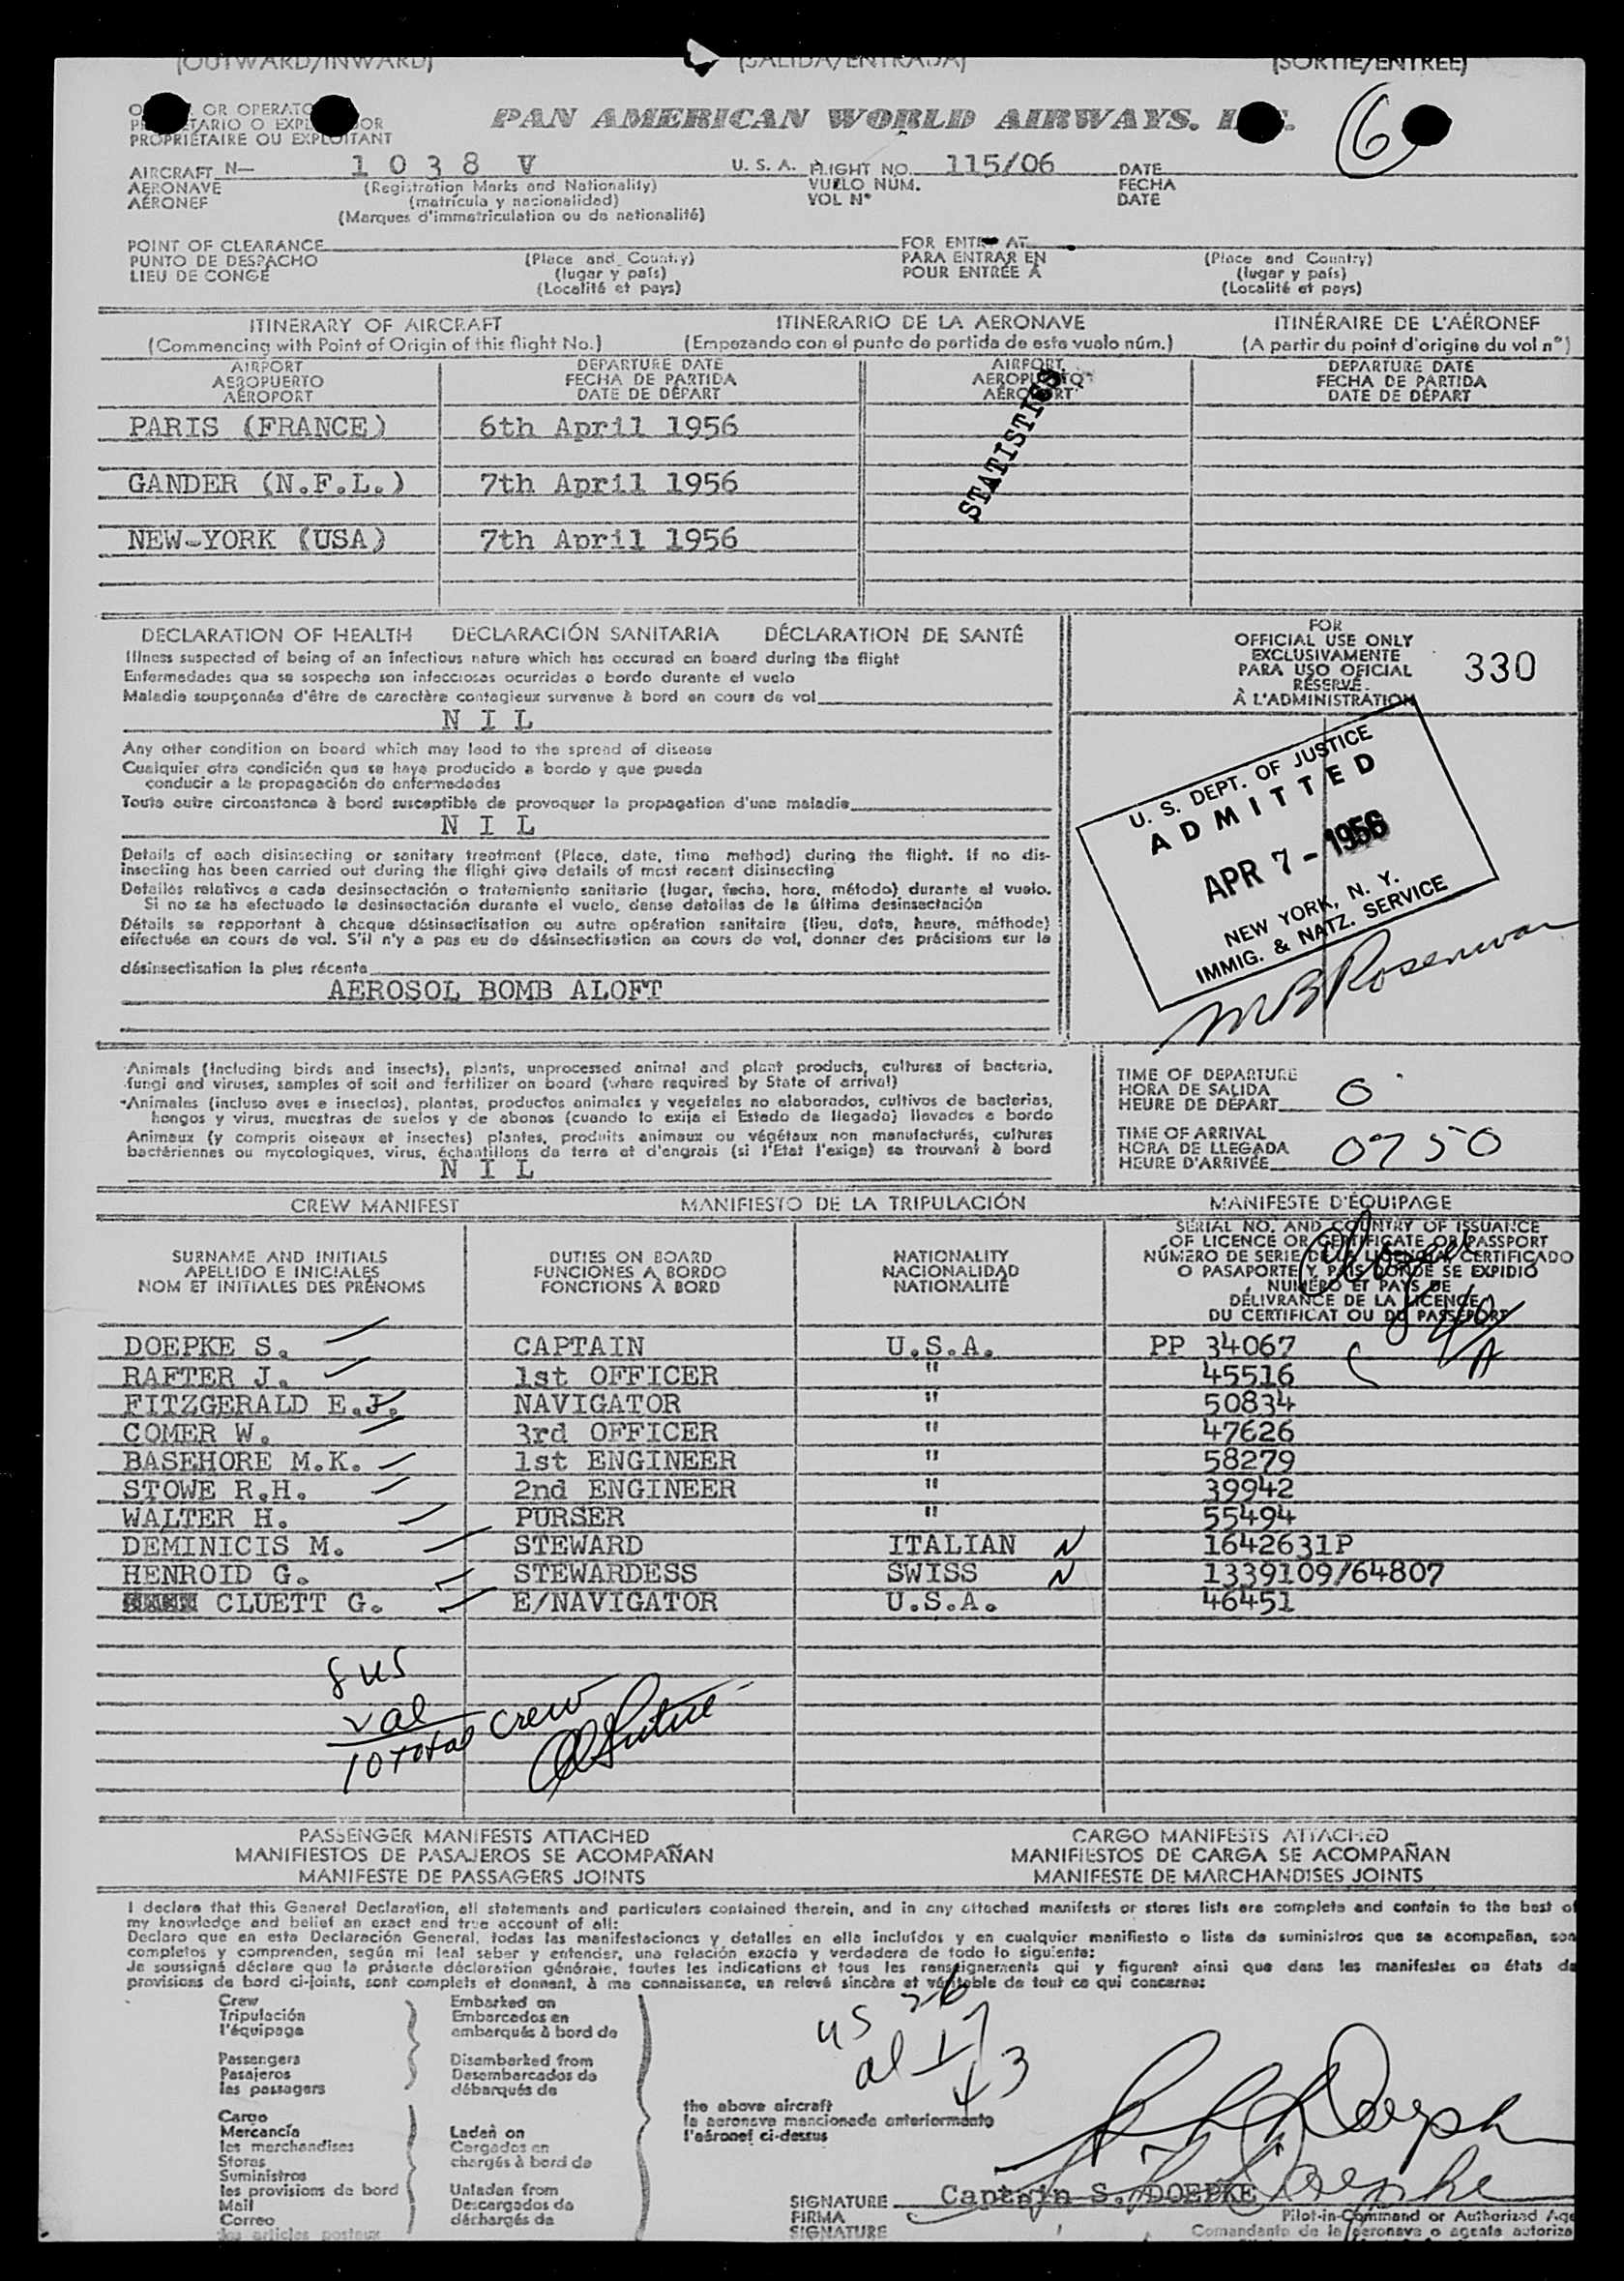 (OUTWARD/INWARD) (SALIDA/ENTRADA) (SORTIE/ENTRÉE)
OR OPERATO
PROPRIÉTAIRE OU EXPLOITANT
PAN AMERICAN WORLD AIRWAYS.
6
AIRCRAFT N— 1 0 3 8 V U. S. A. FLIGHT NO. 115/06 DATE
AERONAVE (Registration Marks and Nationality) VUELO NUM. FECHA
AÉRONEF (matrícula y nacionalidad) VOL N° DATE
(Marques d'immatriculation ou de nationalité)
POINT OF CLEARANCE FOR ENTRY AT
PUNTO DE DESPACHO (Place and Country) PARA ENTRAR EN (Place and Country)
LIEU DE CONGÉ (lugar y país) POUR ENTRÉE À (lugar y país)
(Localité et pays) (Localité et pays)
ITINERARY OF AIRCRAFT ITINERARIO DE LA AERONAVE ITINÉRAIRE DE L'AÉRONEF
(Commencing with Point of Origin of this flight No.) (Empezando con el punto de partida de este vuelo núm.) (A partir du point d'origine du vol n°)
AIRPORT DEPARTURE DATE AIRPORT DEPARTURE DATE
AEROPUERTO FECHA DE PARTIDA AEROPUERTO FECHA DE PARTIDA
AÉROPORT DATE DE DÉPART AÉROPORT DATE DE DÉPART
STATISTICS
PARIS (FRANCE) 6th April 1956
GANDER (N.F.L.) 7th April 1956
NEW-YORK (USA) 7th April 1956
DECLARATION OF HEALTH DECLARACIÓN SANITARIA DÉCLARATION DE SANTÉ
Illness suspected of being of an infectious nature which has occured on board during the flight
Enfermedades que se sospecha son infecciosas ocurridas a bordo durante el vuelo
Maladie soupçonnée d'être de caractère contagieux survenue à bord en cours de vol
N I L
Any other condition on board which may lead to the spread of disease
Cualquier otra condición que se haya producido a bordo y que pueda
conducir a la propagación de enfermedades
Toute autre circonstance à bord susceptible de provoquer la propagation d'une maladie
N I L
Details of each disinsecting or sanitary treatment (Place, date, time method) during the flight. If no dis-
insecting has been carried out during the flight give details of most recent disinsecting
Detalles relativos a cada desinsectación o tratamiento sanitario (lugar, fecha, hora, método) durante el vuelo.
Si no se ha efectuado la desinsectación durante el vuelo, dense detalles de la última desinsectación
Détails se rapportant à chaque désinsectisation ou autre opération sanitaire (lieu, date, heure, méthode)
effectuée en cours de vol. S'il n'y a pas eu de désinsectisation en cours de vol, donner des précisions sur la
désinsectisation la plus récente
AEROSOL BOMB ALOFT
FOR
OFFICIAL USE ONLY
EXCLUSIVAMENTE
PARA USO OFICIAL
RÉSERVÉ
À L'ADMINISTRATION
330
U. S. DEPT. OF JUSTICE
ADMITTED
APR 7 - 1956
NEW YORK, N. Y.
IMMIG. & NATZ. SERVICE
Animals (Including birds and insects), plants, unprocessed animal and plant products, cultures of bacteria,
fungi and viruses, samples of soil and fertilizer on board (where required by State of arrival)
Animales (incluso aves e insectos), plantas, productos animales y vegetales no elaborados, cultivos de bacterias,
hongos y virus, muestras de suelos y de abonos (cuando lo exija el Estado de llegada) llevados a bordo
Animaux (y compris oiseaux et insectes) plantes, produits animaux ou végétaux non manufacturés, cultures
bactériennes ou mycologiques, virus, échantillons de terre et d'engrais (si l'Etat l'exige) se trouvant à bord
N I L
TIME OF DEPARTURE
HORA DE SALIDA
HEURE DE DÉPART 0
TIME OF ARRIVAL
HORA DE LLEGADA
HEURE D'ARRIVÉE 0750
CREW MANIFEST MANIFIESTO DE LA TRIPULACIÓN MANIFESTE D'ÉQUIPAGE
SURNAME AND INITIALS DUTIES ON BOARD NATIONALITY
APELLIDO E INICIALES FUNCIONES A BORDO NACIONALIDAD
NOM ET INITIALES DES PRÉNOMS FONCTIONS À BORD NATIONALITÉ
SERIAL NO. AND COUNTRY OF ISSUANCE
OF LICENCE OR CERTIFICATE OR PASSPORT
NÚMERO DE SERIE DE LA LICENCIA, CERTIFICADO
O PASAPORTE Y PAIS DONDE SE EXPIDIÓ
NUMÉRO ET PAYS DE
DÉLIVRANCE DE LA LICENCE
DU CERTIFICAT OU DU PASSEPORT
DOEPKE S. CAPTAIN U.S.A. PP 34067
RAFTER J. 1st OFFICER " 45516
FITZGERALD E.J. NAVIGATOR " 50834
COMER W. 3rd OFFICER " 47626
BASEHORE M.K. 1st ENGINEER " 58279
STOWE R.H. 2nd ENGINEER " 39942
WALTER H. PURSER " 55494
DEMINICIS M. STEWARD ITALIAN N 1642631P
HENROID G. STEWARDESS SWISS N 1339109/64807
CLUETT G. E/NAVIGATOR U.S.A. 46451
8 US
2 al
10 Total crew
PASSENGER MANIFESTS ATTACHED CARGO MANIFESTS ATTACHED
MANIFIESTOS DE PASAJEROS SE ACOMPAÑAN MANIFIESTOS DE CARGA SE ACOMPAÑAN
MANIFESTE DE PASSAGERS JOINTS MANIFESTE DE MARCHANDISES JOINTS
I declare that this General Declaration, all statements and particulars contained therein, and in any attached manifests or stores lists are complete and contain to the best of
my knowledge and belief an exact and true account of all:
Declaro que en esta Declaración General, todas las manifestaciones y detalles en ella incluídos y en cualquier manifiesto o lista de suministros que se acompañan, son
completos y comprenden, según mi leal saber y entender, una relación exacta y verdadera de todo lo siguiente:
Je soussigné déclare que la présente déclaration générale, toutes les indications et tous les renseignements qui y figurent ainsi que dans les manifestes ou états de
provisions de bord ci-joints, sont complets et donnent, à ma connaissance, un relevé sincère et véritable de tout ce qui concerne:
Crew Embarked on
Tripulación Embarcados en
l'équipage embarqués à bord de
US 26
al 17
43
Passengers Disembarked from
Pasajeros Desembarcados de
les passagers débarqués de
the above aircraft
la aeronave mencionada anteriormente
l'aéronef ci-dessus
Cargo
Mercancía Laden on
les merchandises Cargados en
Stores chargés à bord de
Suministros
les provisions de bord Unladen from
Mail Descargados de
Correo déchargés de
les articles postaux
SIGNATURE Captain S. DOEPKE
FIRMA Pilot-in-Command or Authorized Age
SIGNATURE Comandante de la aeronave o agente autoriza